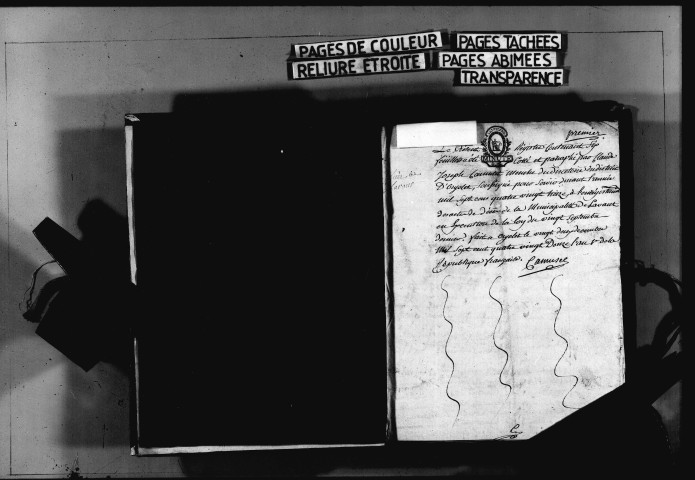 PAGES DE COULEUR PAGES TACHEES
RELIURE ETROITE PAGES ABIMEES
TRANSPARENCE
premier
Le Présent Registre Contenant
feuillets a été Cotté et paraphé par Claude
Joseph membre du directoire du district
D'Orgelet, pour servir durant l'année
mil sept cent quatre vingt treize, à
des actes de de la Municipalité de Lavant
en Execution de la loy du vingt Septembre
dernier. fait a Orgelet le vingt decembre
mil sept cent quatre vingt Douze l'an 1er de la
Republique française.